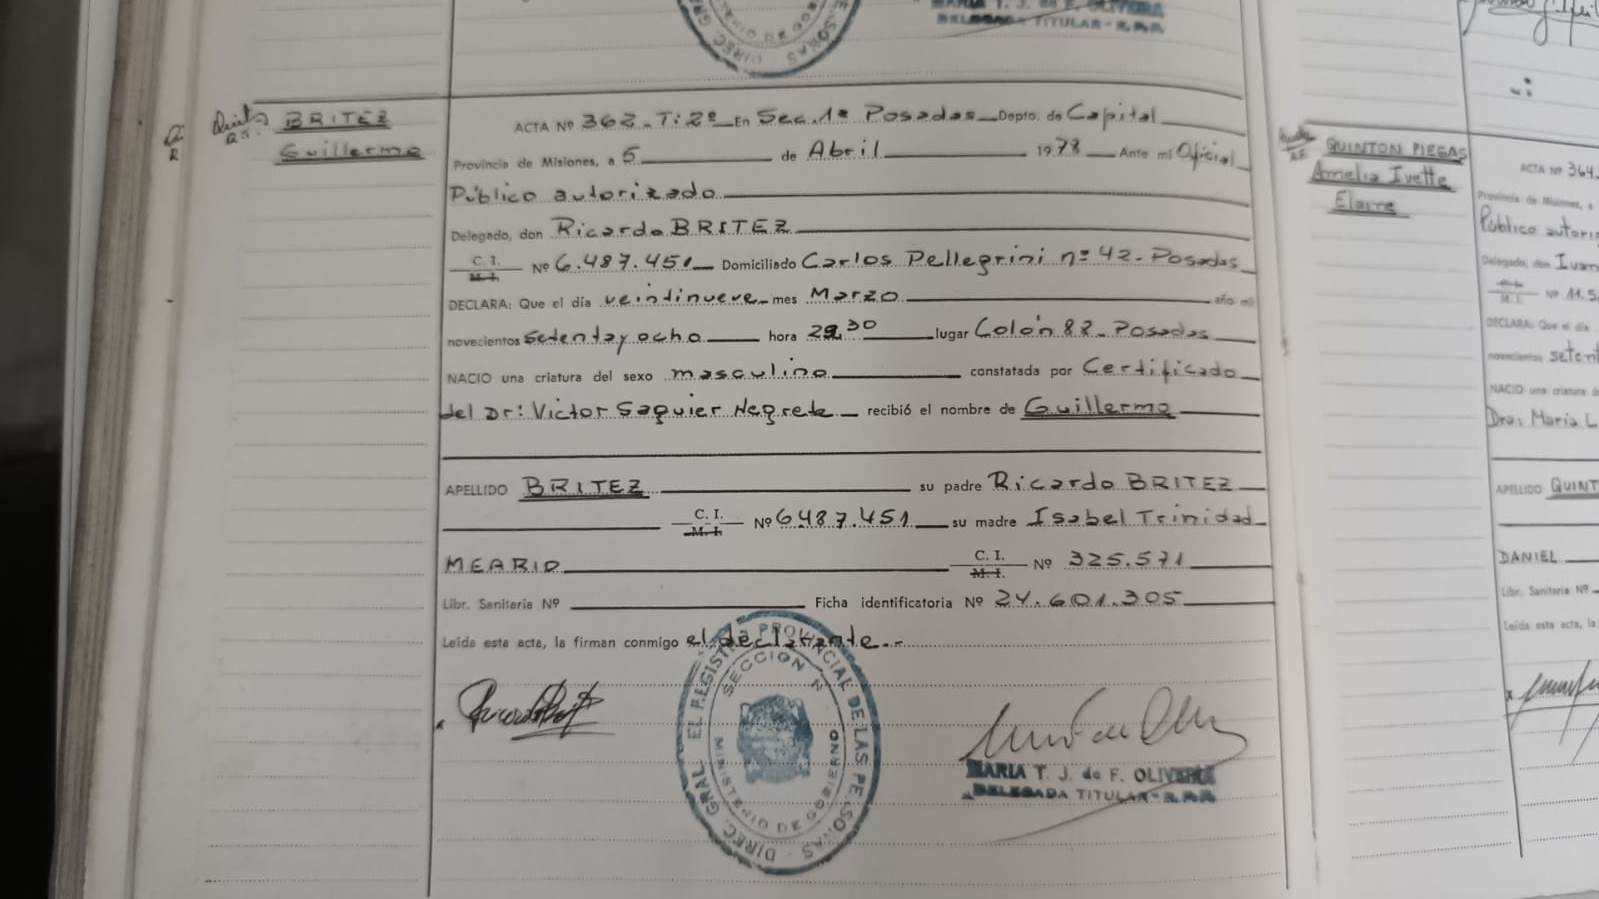 MARIA T. J. de F. OLIVERA
DELEGADA TITULAR - R.P.P.
BRITEZ
Guillermo
ACTA Nº 362_ T: 2º En Sec. 1ª Posadas Depto. de Capital
Provincia de Misiones, a 5 de Abril 1978 Ante mi Oficial
Público autorizado
Delegado, don Ricardo BRITEZ
C. I. M. I. Nº 6.487.451 Domiciliado Carlos Pellegrini nº 42 - Posadas
DECLARA: Que el día veintinueve mes Marzo año mil
novecientos setenta y ocho hora 30 lugar Colón 82 - Posadas
NACIO una criatura del sexo masculino constatada por Certificado
del Dr: Victor Saguier Negrete recibió el nombre de Guillermo
APELLIDO BRITEZ su padre Ricardo BRITEZ
C. I. M. I. Nº 6487.451 su madre Isabel Trinidad
MEABIO C. I. M. I. Nº 325.571
Libr. Sanitaria Nº Ficha identificatoria Nº 24.601.305
Leída esta acta, la firman conmigo el declarante.-
DIREC. GRAL. EL REGISTRO PROVINCIAL DE LAS PERSONAS
SECCION N
MINISTERIO DE GOBIERNO
MARIA T. J. de F. OLIVERA
DELEGADA TITULAR -
QUINTON PIEGAS
Amelia Ivette
Elaine
ACTA Nº 364
Provincia de Misiones, a
Público autori
Delegado, don Ivan
M. I. Nº 11.5
DECLARA: Que el día
novecientos seten
NACIO una criatura d
Dra: María L
APELLIDO QUINT
DANIEL
Libr. Sanitaria Nº
Leída esta acta, la